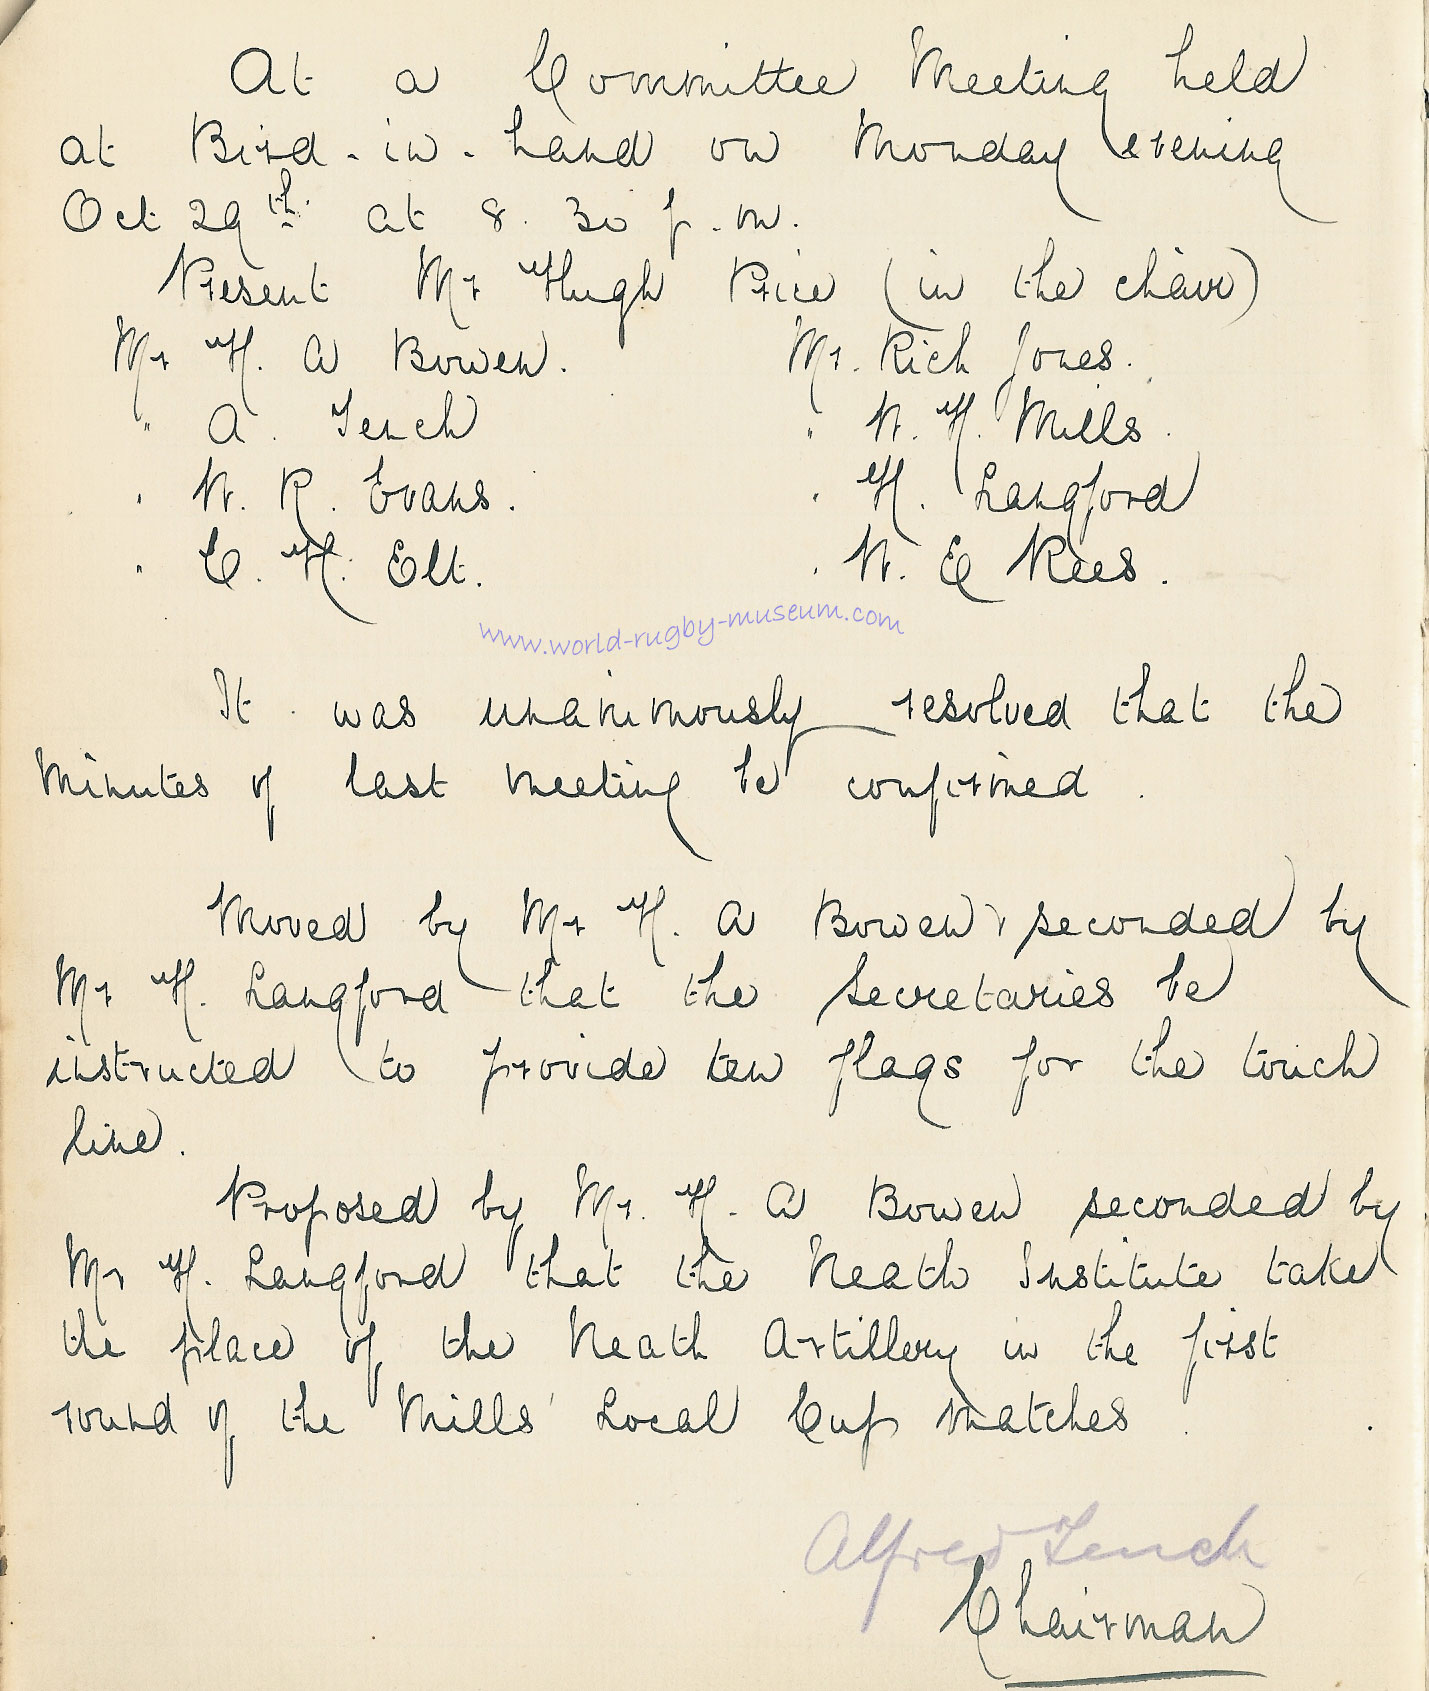 At a Committee Meeting held
at Bird-in-hand on Monday evening
Oct 29th at 8.30 p.m.
Present Mr Hugh Price (in the chair)
Mr H. A Bowen. Mr. Rich Jones.
" A. Tench " W. H. Mills.
" W. R. Evans. " H. Langford
" C. H. Elt. " W. E Rees.
www.world-rugby-museum.com
It was unanimously resolved that the
Minutes of last meeting be confirmed.
Moved by Mr H. A Bowen & seconded by
Mr H. Langford that the Secretaries be
instructed to provide ten flags for the touch
line.
Proposed by Mr. H. A Bowen seconded by
Mr H. Langford that the Neath Institute take
the place of the Neath Artillery in the first
round of the Mills' Local Cup matches.
Alfred Tench
Chairman